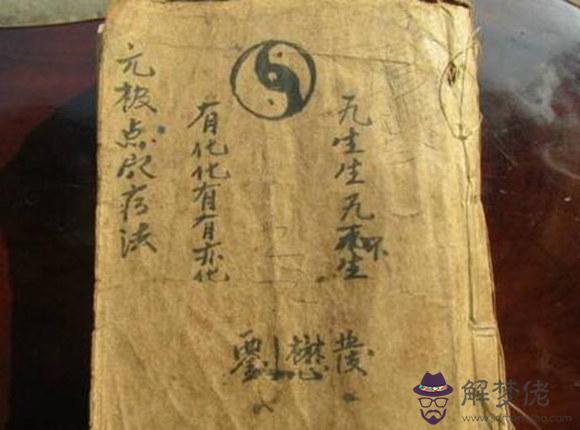 无生生无不生
有化化有有亦化
元极点疗法
懋
解梦佬